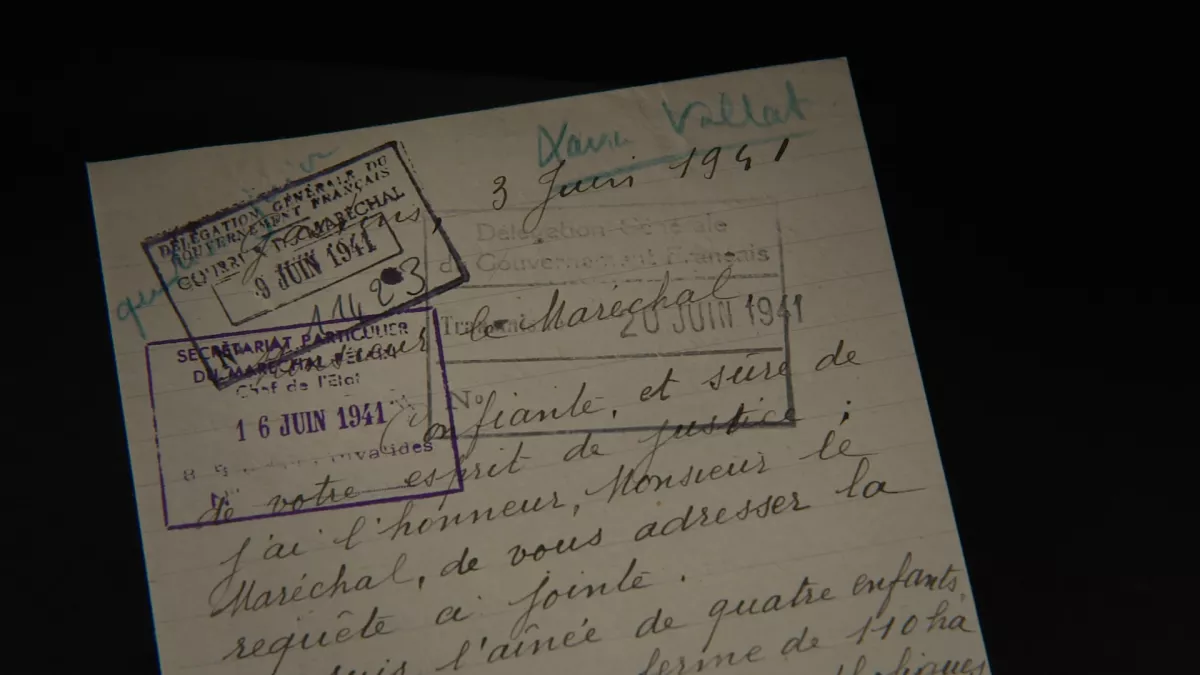 Xavier Vallat
3 Juin 1941
DÉLÉGATION GÉNÉRALE DU
GOUVERNEMENT FRANÇAIS
COURRIER DU MARÉCHAL
9 JUIN 1941
N° 11423
Délégation Générale
du Gouvernement Français
Transmis le 20 JUIN 1941
No
SECRÉTARIAT PARTICULIER
DU MARÉCHAL PÉTAIN
Chef de l'Etat
16 JUIN 1941
Invalides
Monsieur le Maréchal
Confiante, et sûre de
de votre esprit de justice ;
j'ai l'honneur, Monsieur le
Maréchal, de vous adresser la
requête ci jointe.
suis l'aînée de quatre enfants,
ferme de 110 ha